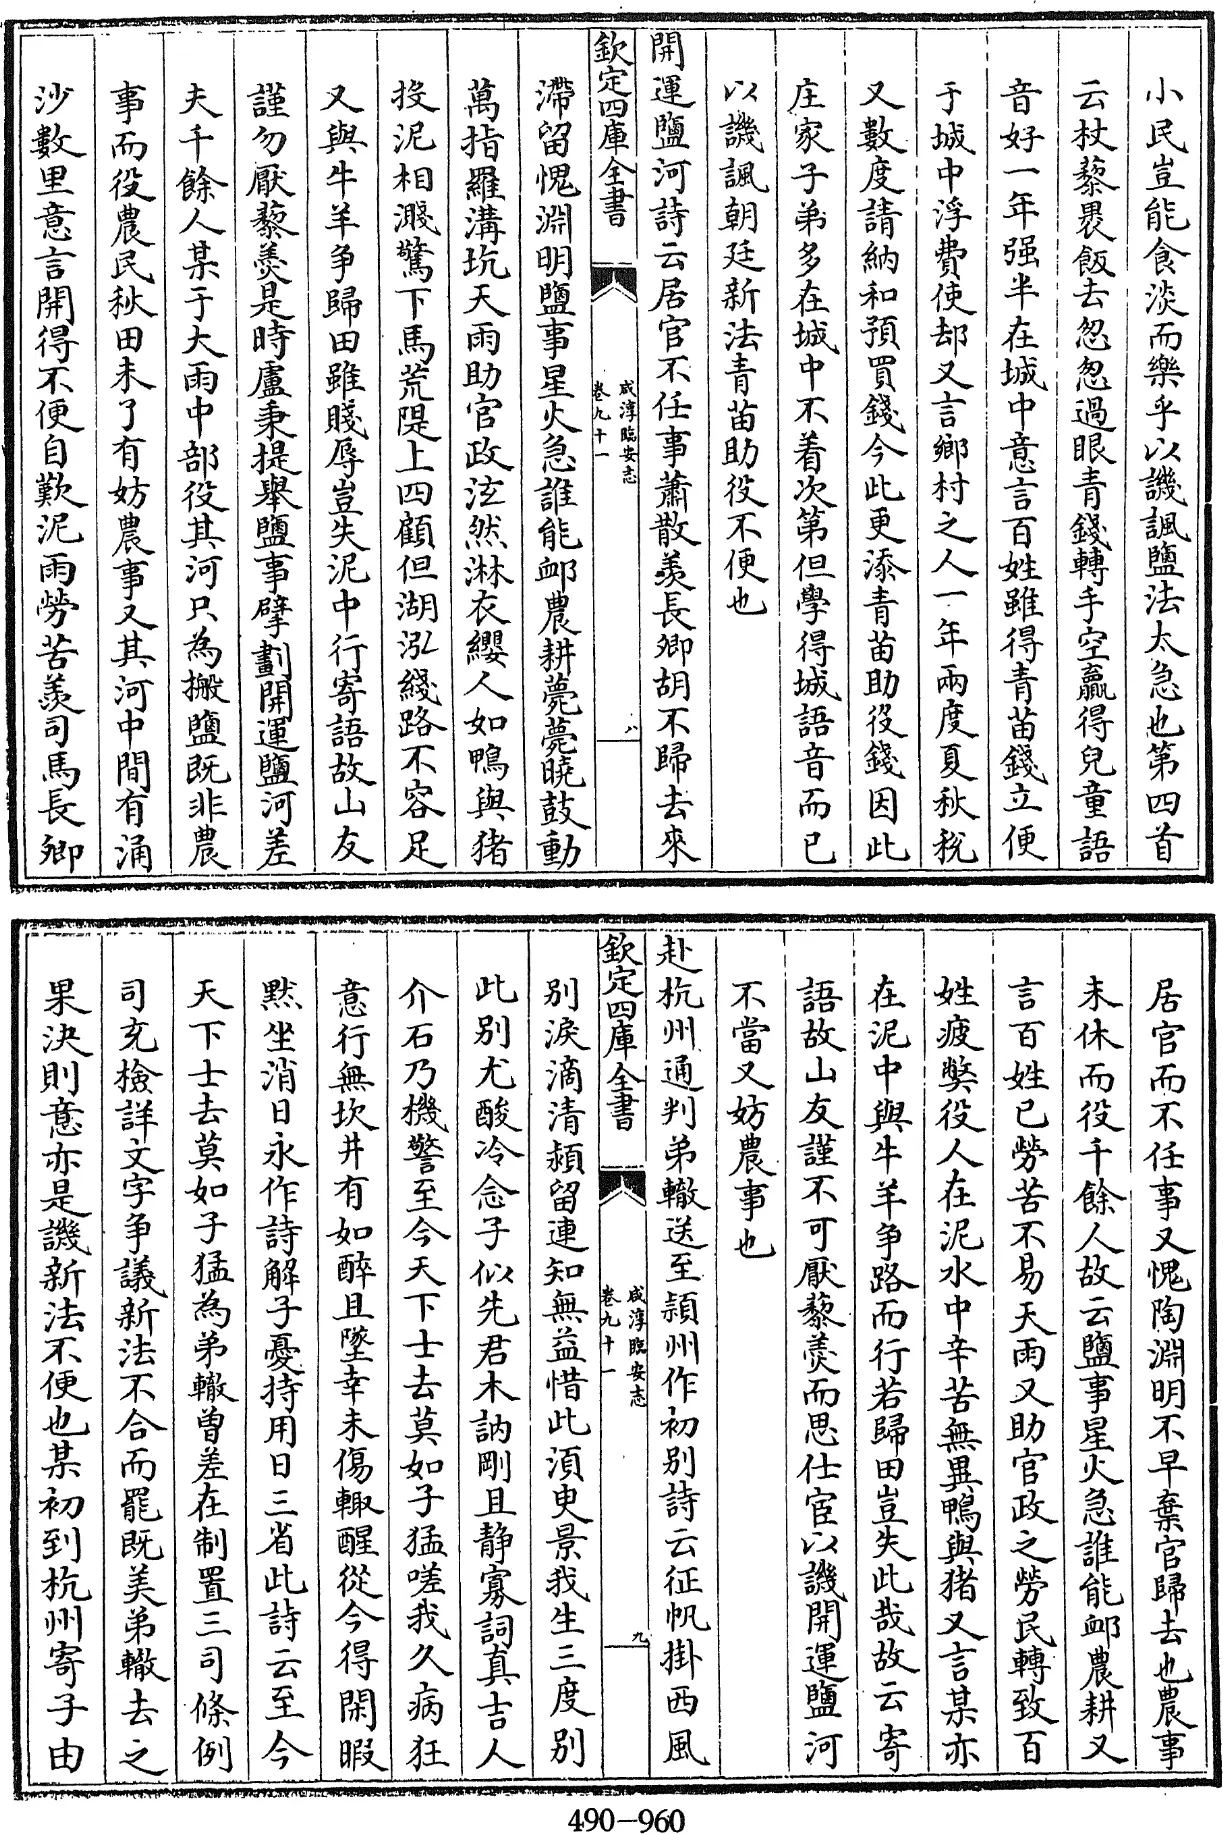 小民豈能食淡而樂乎以譏諷鹽法太急也第四首
云杖藜裹飯去忽忽過眼青錢轉手空贏得兒童語
音好一年强半在城中意言百姓雖得青苗錢立便
于城中浮費使却又言鄉村之人一年兩度夏秋稅
又數度請納和預買錢今此更添青苗助役錢因此
庄家子弟多在城中不着次第但學得城語音而已
以譏諷朝廷新法青苗助役不便也
開運鹽河詩云居官不任事蕭散羨長卿胡不歸去來
欽定四庫全書
咸淳臨安志
卷九十一
八
滯留愧淵明鹽事星火急誰能卹農耕薨薨曉鼓動
萬指羅溝坑天雨助官政泫然淋衣纓人如鴨與猪
投泥相濺驚下馬荒隄上四顧但湖泓綫路不容足
又與牛羊争歸田雖賤辱豈失泥中行寄語故山友
謹勿厭藜羹是時盧秉提舉鹽事擘劃開運鹽河差
夫千餘人某于大雨中部役其河只為搬鹽既非農
事而役農民秋田未了有妨農事又其河中間有涌
沙數里意言開得不便自歎泥雨勞苦羨司馬長卿
居官而不任事又愧陶淵明不早棄官歸去也農事
未休而役千餘人故云鹽事星火急誰能卹農耕又
言百姓已勞苦不易天雨又助官政之勞民轉致百
姓疲獘役人在泥水中辛苦無異鴨與猪又言某亦
在泥中與牛羊争路而行若歸田豈失此哉故云寄
語故山友謹不可厭藜羹而思仕宦以譏開運鹽河
不當又妨農事也
赴杭州通判弟轍送至潁州作初别詩云征帆掛西風
欽定四庫全書
咸淳臨安志
卷九十一
九
别淚滴清潁留連知無益惜此須臾景我生三度别
此别尤酸冷念子似先君木訥剛且静寡詞真吉人
介石乃機警至今天下士去莫如子猛嗟我久病狂
意行無坎井有如醉且墜幸未傷輙醒從今得閑暇
黙坐消日永作詩解子憂持用日三省此詩云至今
天下士去莫如子猛為弟轍曾差在制置三司條例
司充檢詳文字争議新法不合而罷既美弟轍去之
果決則意亦是譏新法不便也某初到杭州寄子由
490-960